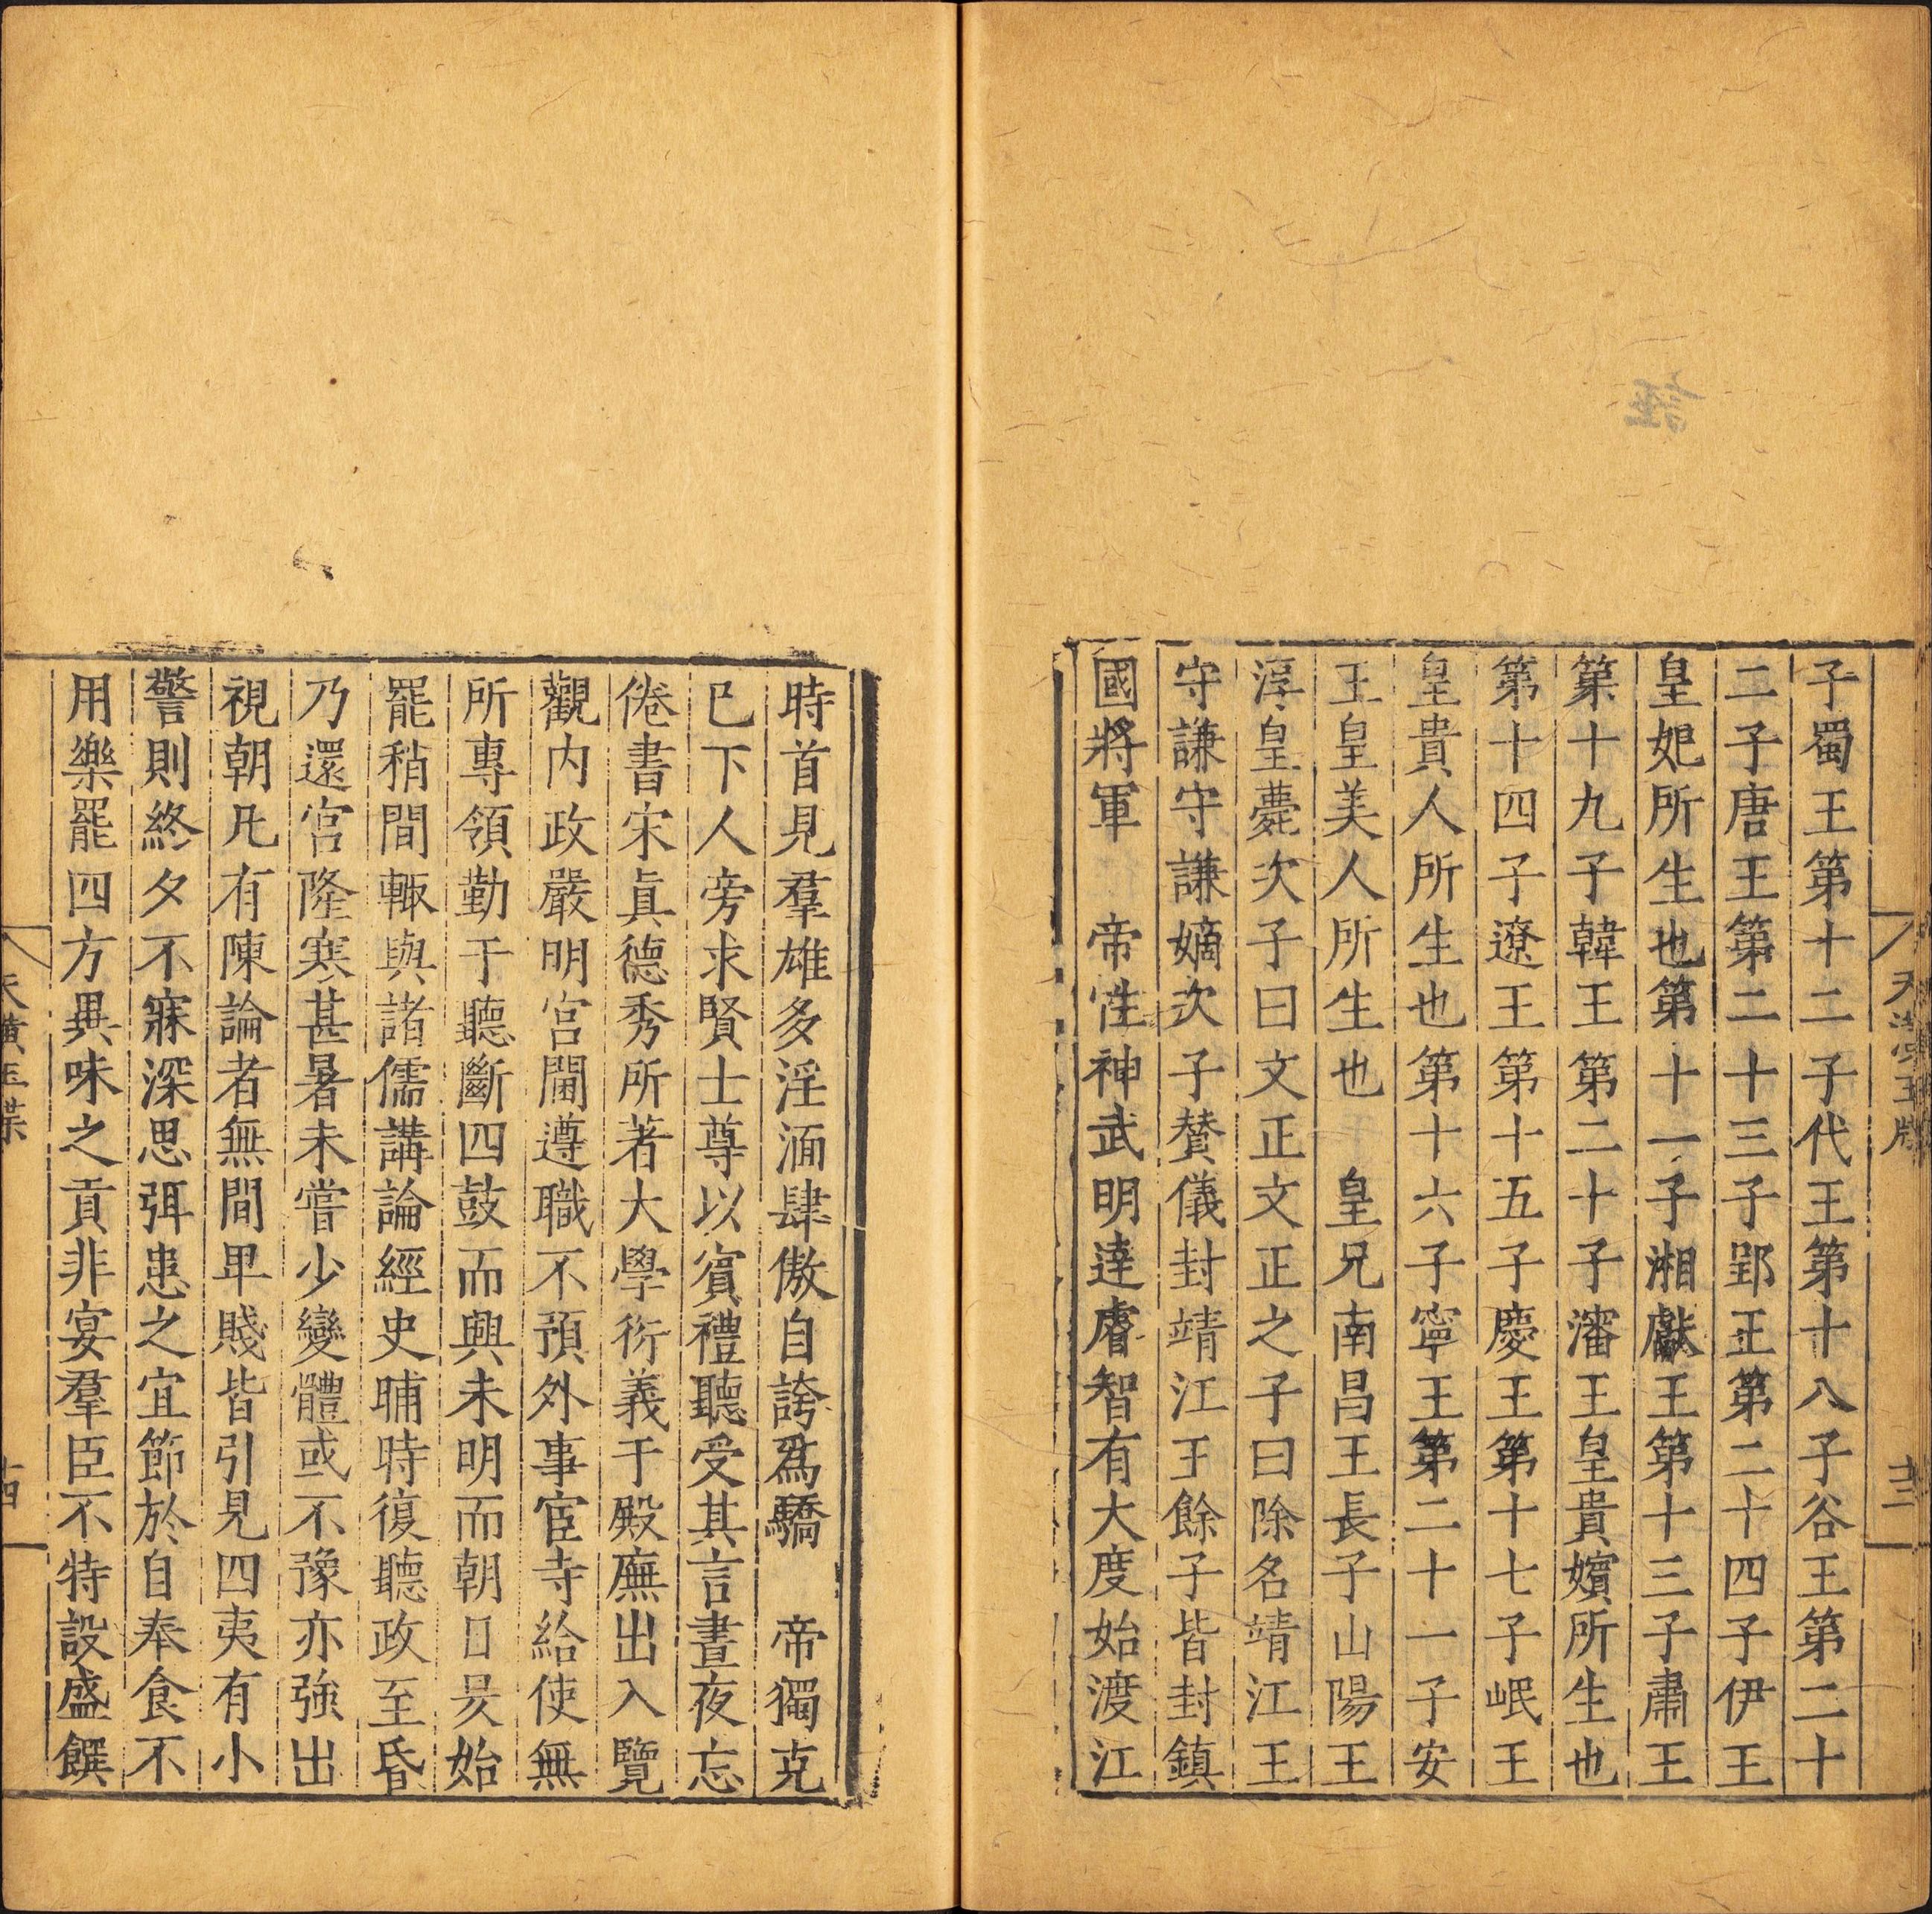 子蜀王第十二子代王第十八子谷王第二十
二子唐王第二十三子郢王第二十四子伊王
皇妃所生也第十一子湘獻王第十三子肅王
第十九子韓王第二十子瀋王皇貴嬪所生也
第十四子遼王第十五子慶王第十七子岷王
皇貴人所生也第十六子寧王第二十一子安
王皇美人所生也 皇兄南昌王長子山陽王
淳皇薨次子曰文正文正之子曰除名靖江王
守謙守謙嫡次子賛儀封靖江王餘子皆封鎮
國將軍 帝性神武明達睿智有大度始渡江
時首見羣雄多淫湎肆傲自誇爲驕 帝獨克
已下人旁求賢士尊以賔禮聽受其言晝夜忘
倦書宋眞德秀所著大學衍義于殿廡出入覽
觀内政嚴明宮闈遵職不預外事宦寺給使無
所專領勤于聽斷四鼓而興未明而朝日昃始
罷稍間輙與諸儒講論經史晡時復聽政至昏
乃還宮隆寒甚暑未嘗少變體或不豫亦強出
視朝凡有陳論者無間卑賤皆引見四夷有小
警則終夕不寐深思弭患之宜節於自奉食不
用樂罷四方異味之貢非宴羣臣不特設盛饌
天潢玉牒
十四